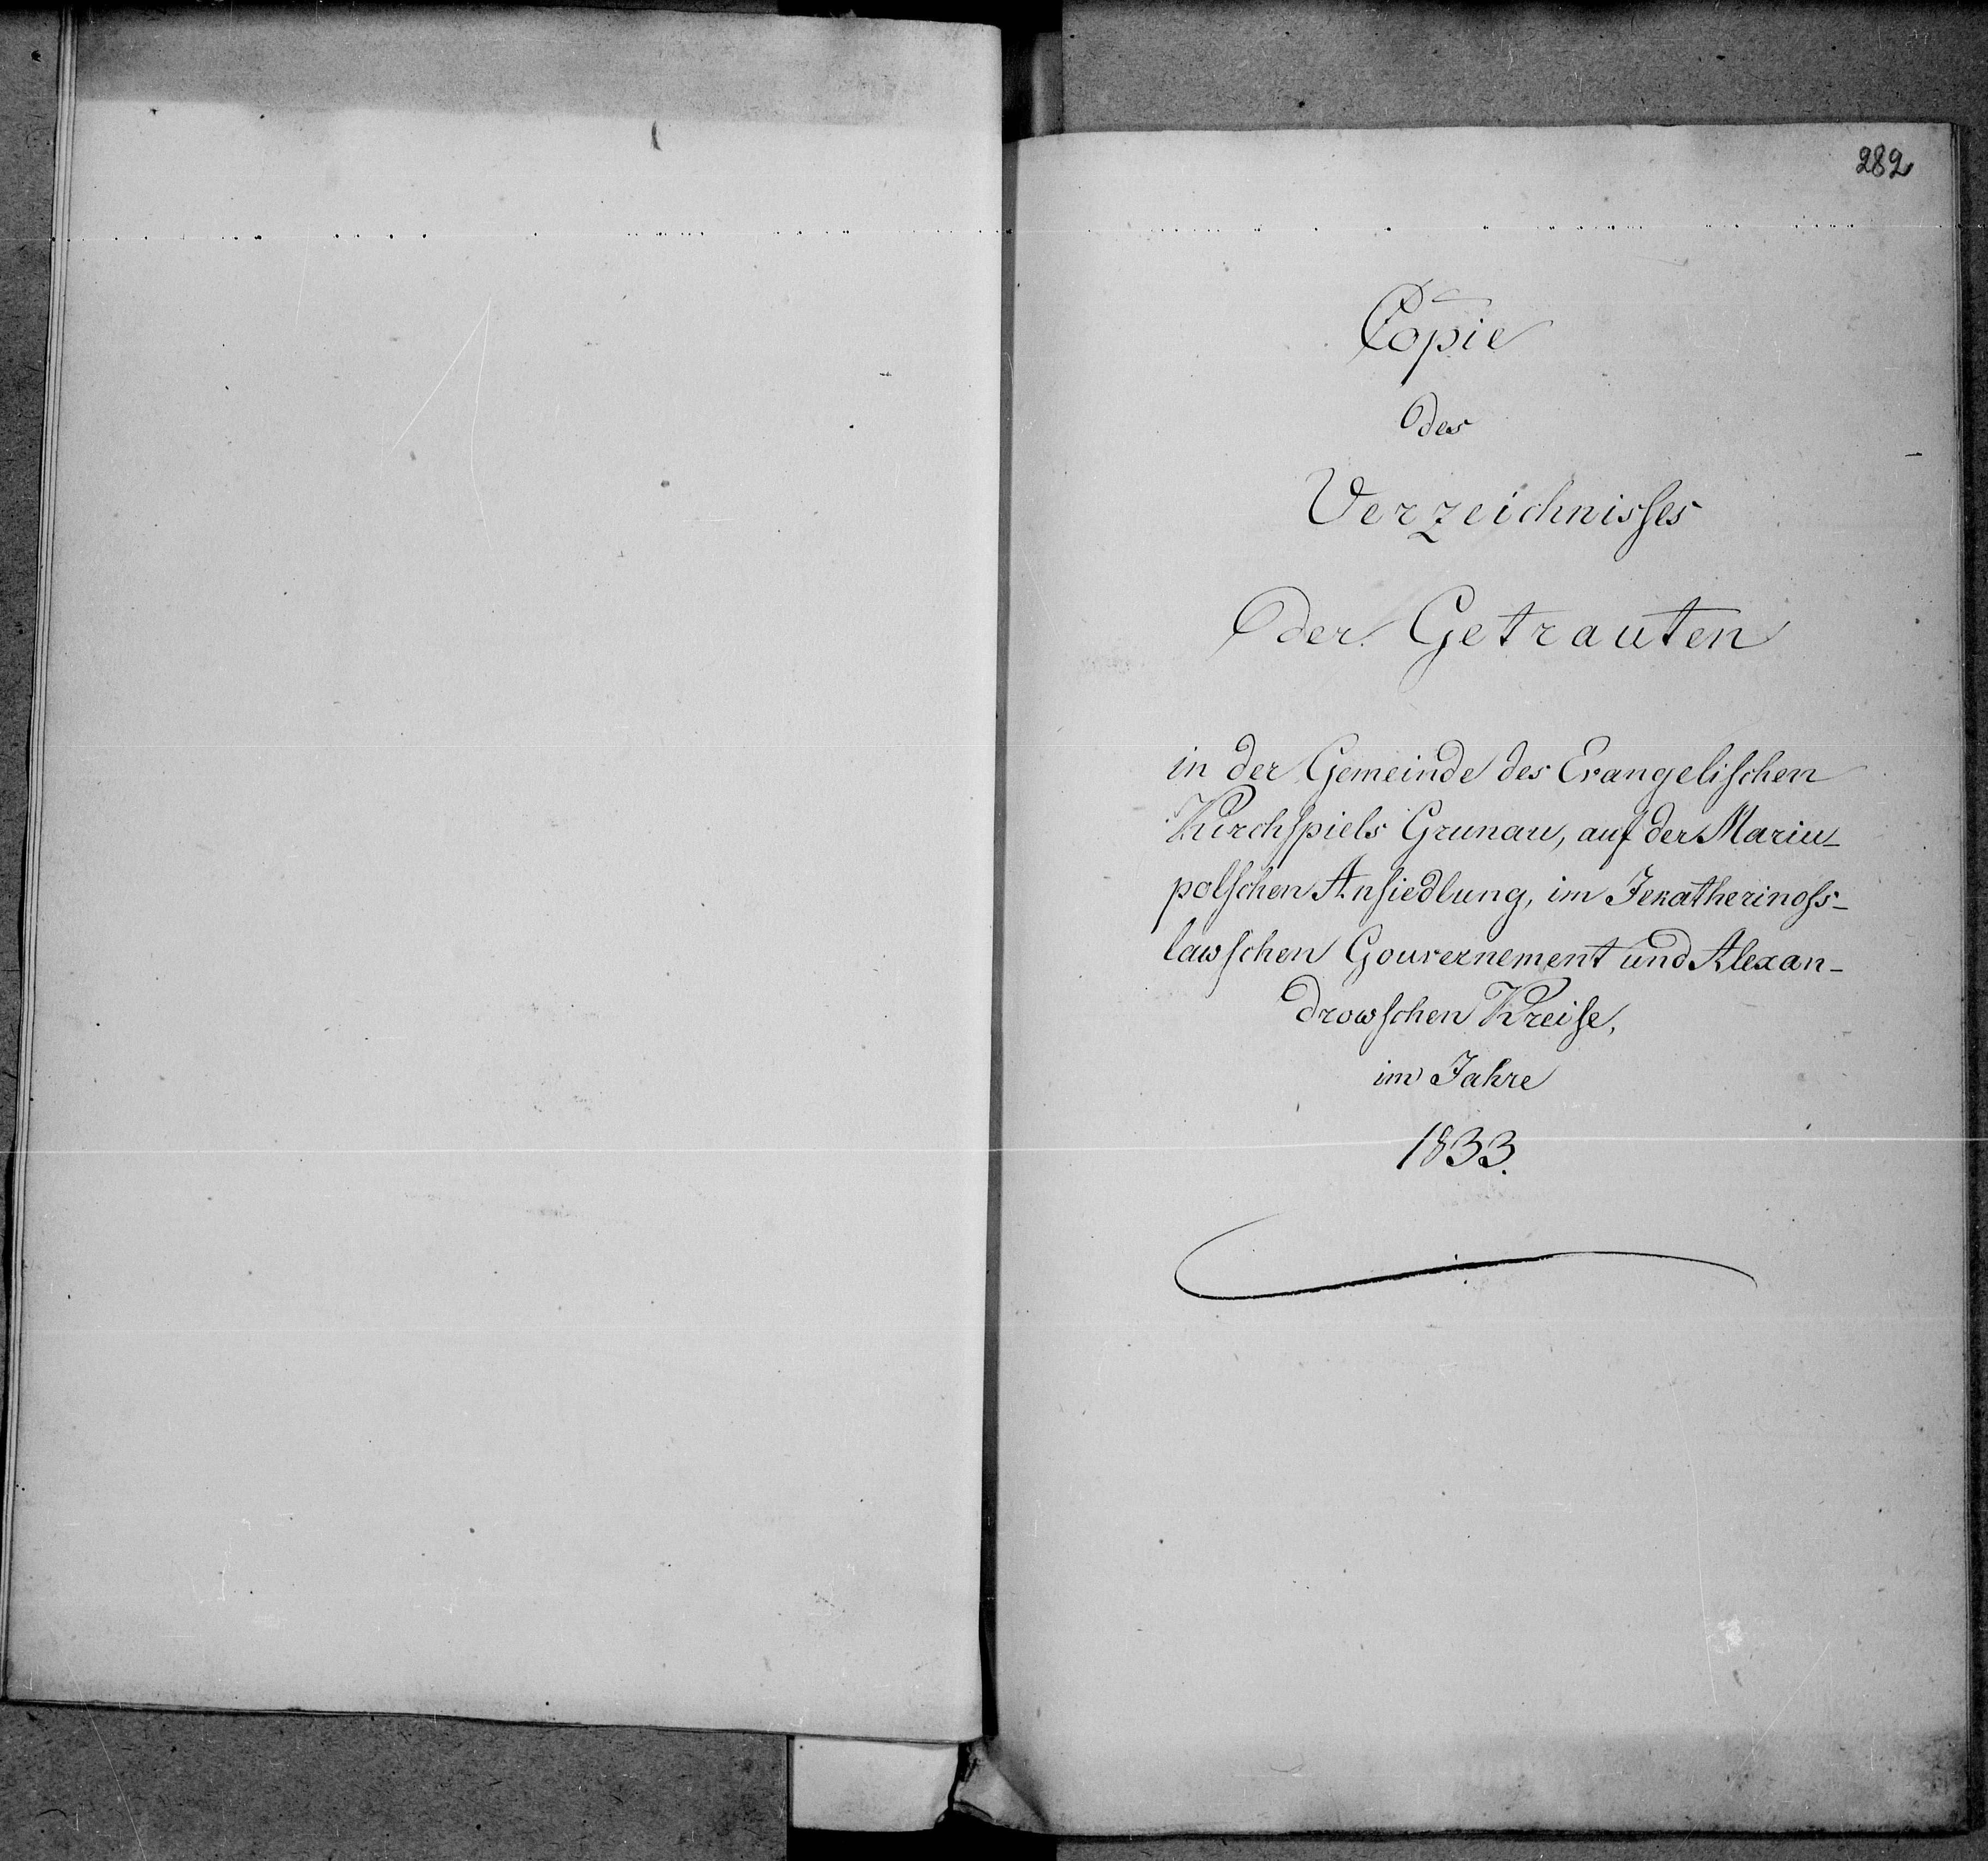 282
Copie
des
Verzeichnisses
der Getrauten
in der Gemeinde des Evangelischen
Kirchspiels Grunau, auf der Mariu-
polschen Ansiedlung, im Jekatherinoss-
lawschen Gouvernement und Alexan-
drowschen Kreise,
im Jahre
1833.